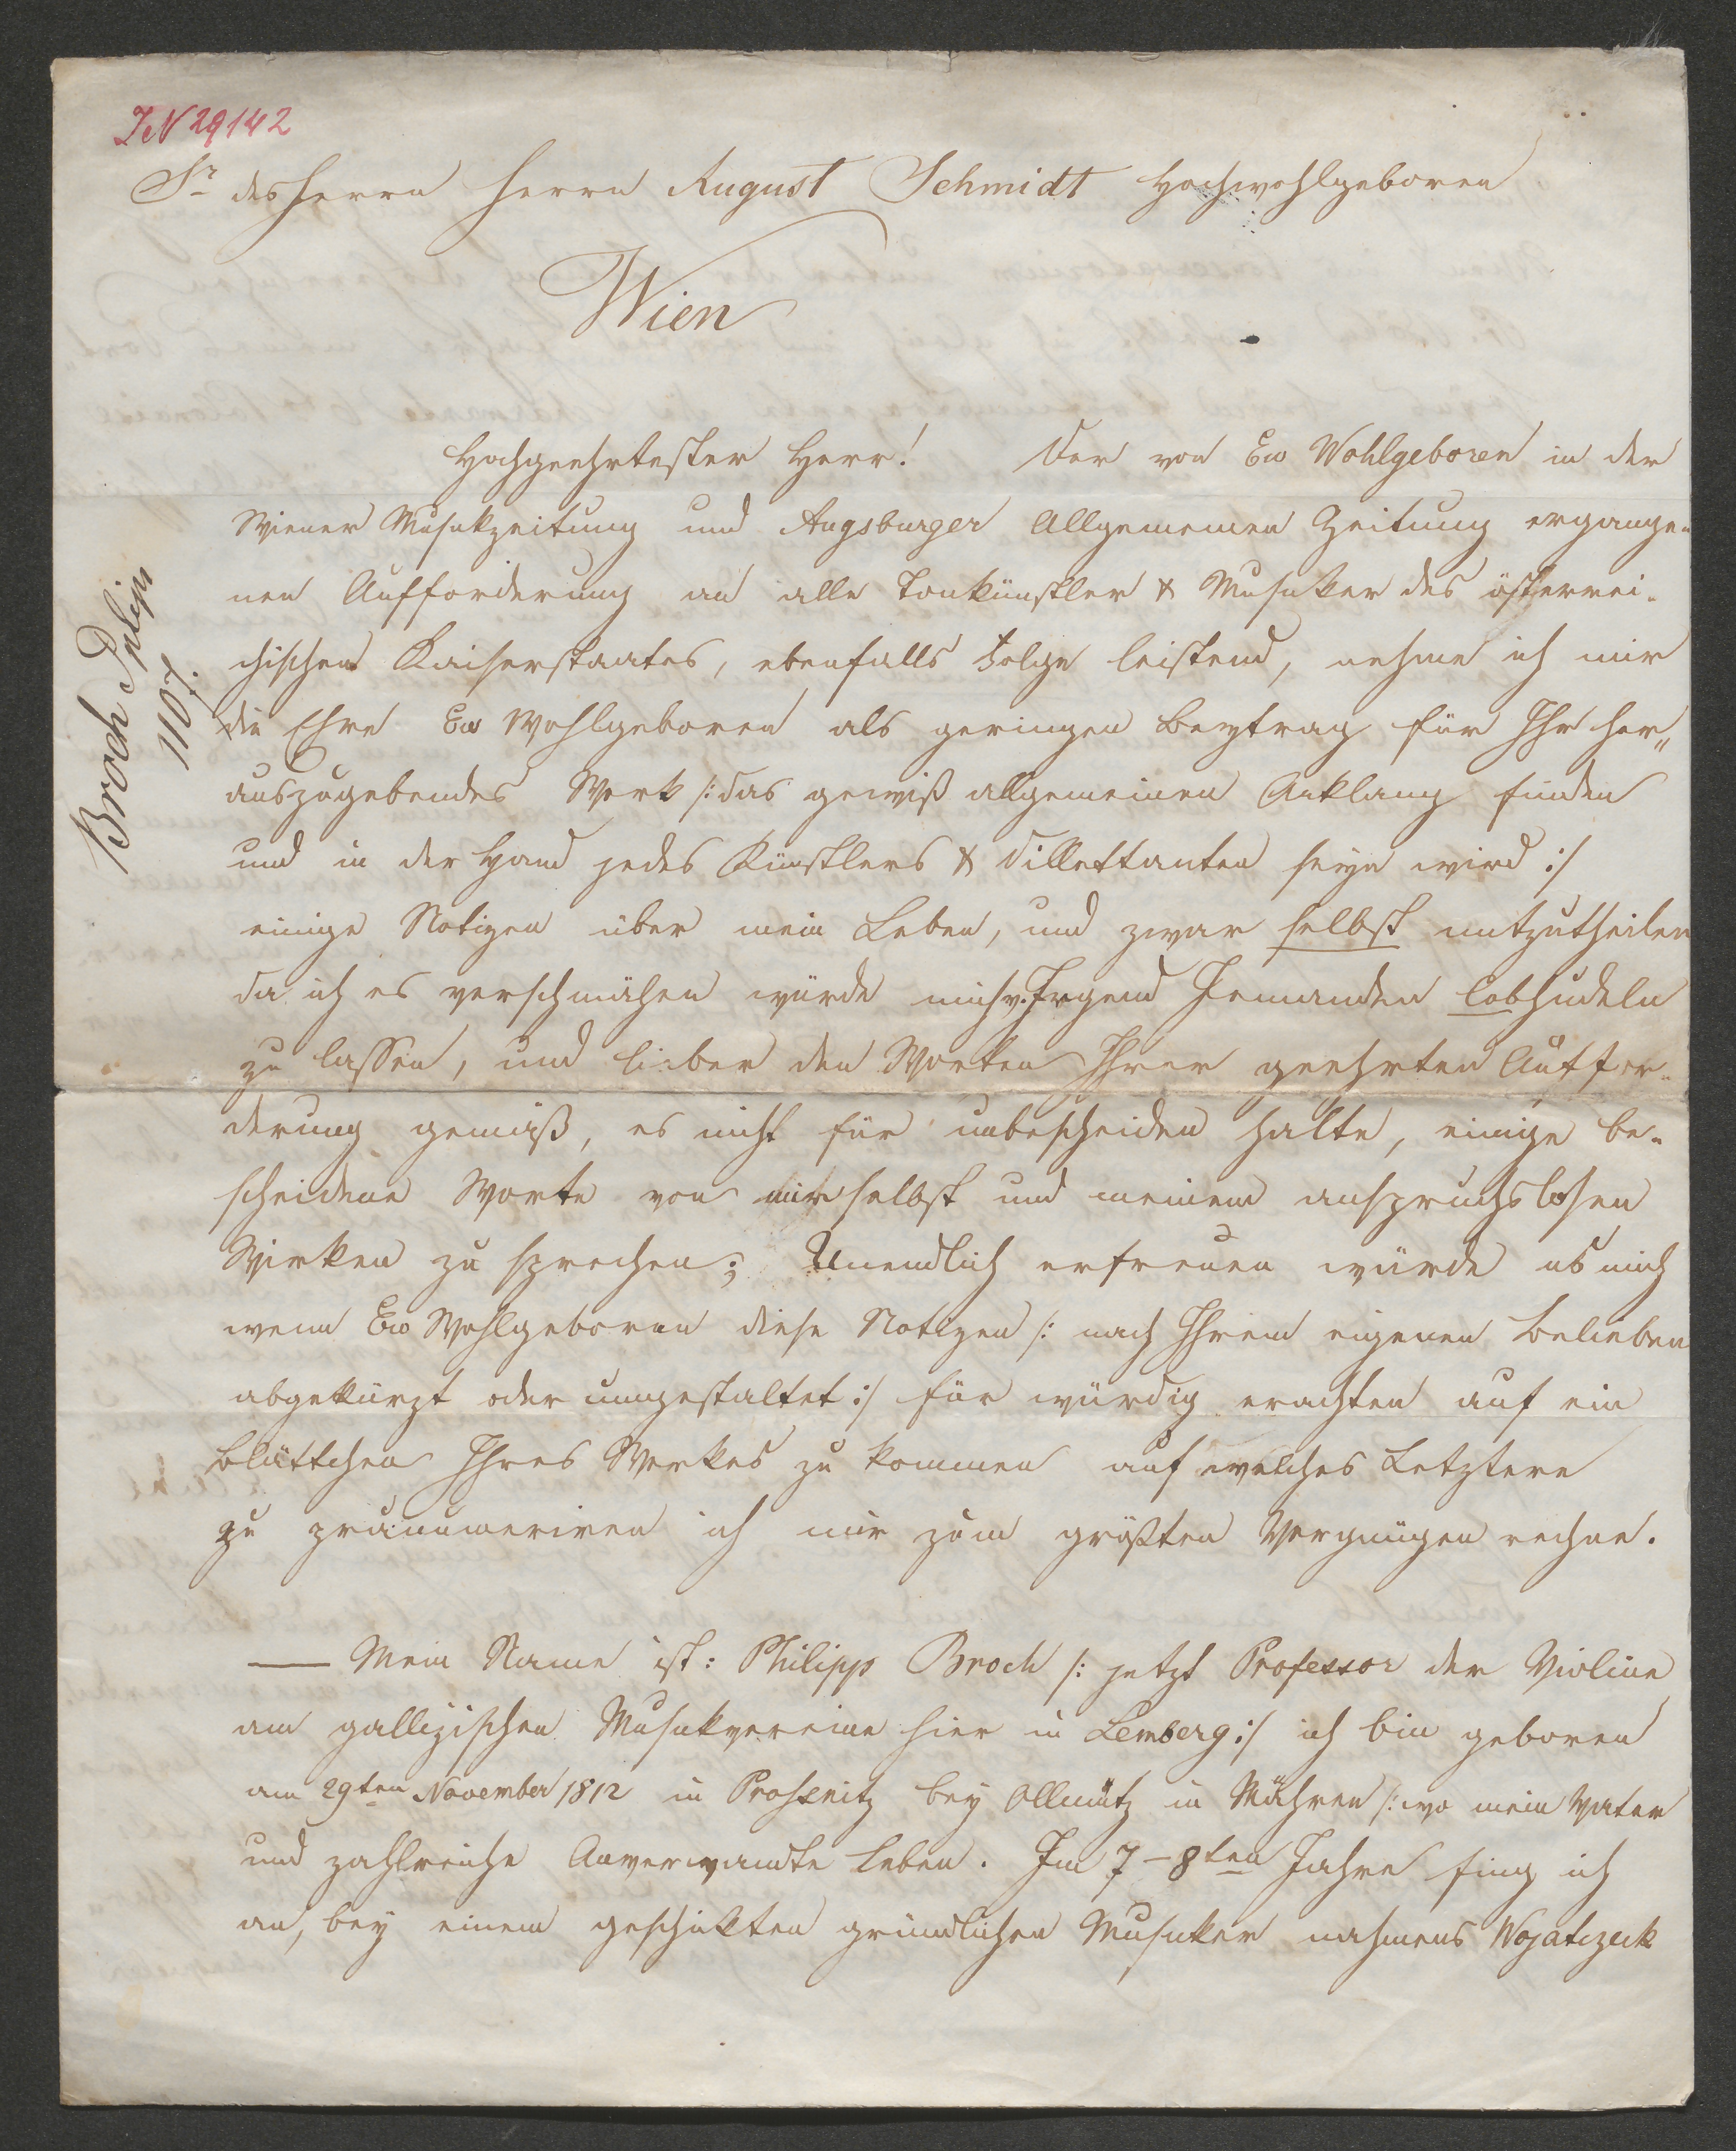 IN 29142
Sr des Herrn Herrn August Schmidt Hochwohlgeboren
Wien
Broch Philipp
1107.
Hochgeehrtester Herr! Der von Ew Wohlgeboren in der
Wiener Musikzeitung und Augsburger Allgemeinen Zeitung ergange-
nen Aufforderung an alle Tonkünstler & Musiker des österrei-
chischen Kaiserstaates, ebenfalls Folge leistend, nehme ich mir
die Ehre Ew Wohlgeboren als geringen Beytrag für Ihr her„
auszugebendes Werk /: das gewiß allgemeinen Anklang finden
und in der Hand jedes Künstlers & Dillettanten seyn wird :/
einige Notizen über mein Leben, und zwar selbst mitzutheilen
da ich es verschmähen würde mich v. Irgend Jemanden lobhudeln
zu lassen, und lieber den Worten Ihrer geehrten Auffor-
derung gemäß, es nicht für unbescheiden halte, einige be-
scheidene Worte von mir selbst und meinem anspruchslosen
Wirken zu sprechen; Unendlich erfreuen würde es mich
wenn Ew Wohlgeboren diese Notizen /: nach Ihrem eigenen Belieben
abgekürzt oder umgestaltet :/ für würdig erachten auf ein
Blättchen Ihres Werkes zu kommen auf welches Letztere
zu pränumeriren ich mir zum größten Vergnügen rechne.
— Mein Name ist: Philipp Broch /: jetzt Professor der Violine
am gallizischen Musikvereine hier in Lemberg :/ ich bin geboren
am 29ten November 1812 in Prossnitz bey Ollmütz in Mähren /: wo mein Vater
und zahlreiche Anverwandte leben. Im 7–8ten Jahre fing ich
an, bey einem geschikten gründlichen Musiker nahmens Wojatczek